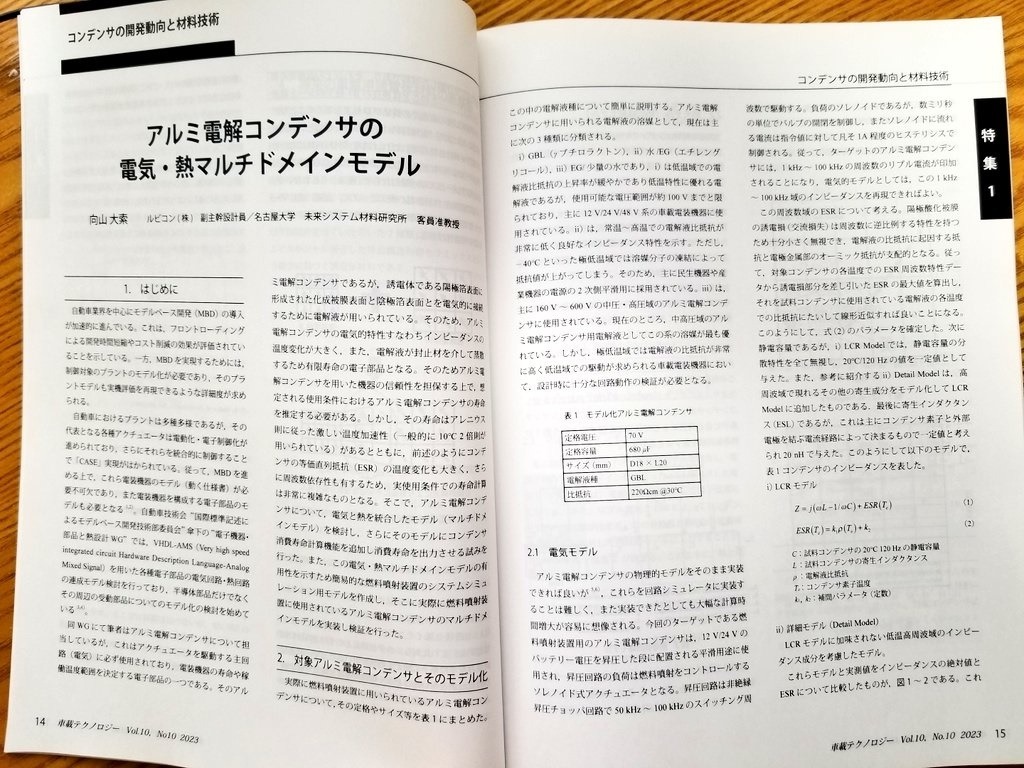 コンデンサの開発動向と材料技術
アルミ電解コンデンサの
電気・熱マルチドメインモデル
向山 大索 ルビコン(株) 副主幹設計員/名古屋大学 未来システム材料研究所 客員准教授
1. はじめに
自動車業界を中心にモデルベース開発(MBD)の導入
が加速的に進んでいる。これは、フロントローディング
による開発時間短縮やコスト削減の効果が評価されてい
ることを示している。一方、MBDを実現するためには、
制御対象のプラントのモデル化が必要であり、そのプラ
ントモデルも実機評価を再現できるような詳細度が求め
られる。
自動車におけるプラントは多種多様であるが、その
代表となる各種アクチュエータは電動化・電子制御化が
進められており、さらにそれらを統合的に制御すること
で「CASE」実現がはかられている。従って、MBDを進
める上で、これら電装機器のモデル(動く仕様書)が必
要不可欠であり、また電装機器を構成する電子部品のモ
デルも必要となる。自動車技術会“国際標準記述に
よるモデルベース開発技術部委員会”傘下の“電子機器・
部品と熱設計WG”では、VHDL-AMS(Very high speed
integrated circuit Hardware Description Language-Analog
Mixed Signal)を用いた各種電子部品の電気回路・熱回路
の連成モデル検討を行っており、半導体部品だけでなく
その周辺の受動部品についてのモデル化の検討を始めて
いる。
同WGにて筆者はアルミ電解コンデンサについて担
当しているが、これはアクチュエータを駆動する主回
路(電気)に必ず使用されており、電装機器の寿命や稼
働温度範囲を決定する電子部品の一つである。そのアル
ミ電解コンデンサであるが、誘電体である陽極箔表面に
形成された化成被膜表面と陰極箔表面とを電気的に接続
するために電解液が用いられている。そのため、アルミ
電解コンデンサの電気的特性すなわちインピーダンスの
温度変化が大きく、また、電解液が封止材を介して蒸散
するため有限寿命の電子部品となる。そのためアルミ電
解コンデンサを用いた機器の信頼性を担保する上で、想
定される使用条件におけるアルミ電解コンデンサの寿命
を推定する必要がある。しかし、その寿命はアレニウス
則に従った激しい温度加速性(一般的に10℃2倍則が
用いられている)があるとともに、前述のようにコンデ
ンサの等価直列抵抗(ESR)の温度変化も大きく、さら
に周波数依存性も有するため、実使用条件での寿命計算
は非常に複雑なものとなる。そこで、アルミ電解コンデ
ンサについて、電気と熱を統合したモデル(マルチドメ
インモデル)を検討し、さらにそのモデルにコンデンサ
消費寿命計算機能を追加し消費寿命を出力させる試みを
行った。また、この電気・熱マルチドメインモデルの有
用性を示すため簡易的な燃料噴射装置のシステムシミュ
レーション用モデルを作成し、そこに実際に燃料噴射装
置に使用されているアルミ電解コンデンサのマルチドメ
インモデルを実装し検証を行った。
2. 対象アルミ電解コンデンサとそのモデル化
実際に燃料噴射装置に用いられているアルミ電解コン
デンサについて、その定格やサイズ等を表1にまとめた。
14 車載テクノロジー Vol.10, No10 2023
コンデンサの開発動向と材料技術
この中の電解液種について簡単に説明する。アルミ電解
コンデンサに用いられる電解液の溶媒として、現在は主
に次の3種類に分類される。
i) GBL(γブチロラクトン)、ii) 水/EG(エチレング
リコール)、iii) EG/少量の水であり、i) は低温域での電
解液比抵抗の上昇率が緩やかであり低温特性に優れる電
解液であるが、使用可能な電圧範囲が約100 Vまでと限
られており、主に12 V/24 V/48 V系の車載電装機器に使
用されている。ii) は、常温~高温での電解液比抵抗が
非常に低く良好なインピーダンス特性を示す。ただし、
-40℃といった極低温域では溶媒分子の凍結によって
抵抗値が上がってしまう。そのため、主に民生機器や産
業機器の電源の2次側平滑用に採用されている。iii) は、
主に160 V~600 Vの中圧・高圧域のアルミ電解コンデ
ンサに使用されている。現在のところ、中高圧域のアル
ミ電解コンデンサ用電解液としてこの系の溶媒が最も優
れている。しかし、極低温域では電解液の比抵抗が非常
に高く低温域での駆動が求められる車載電装機器におい
て、設計時に十分な回路動作の検証が必要となる。
表1 モデル化アルミ電解コンデンサ
定格電圧 70 V
定格容量 680 μF
サイズ(mm) D18 × L20
電解液種 GBL
比抵抗 220Ωcm @30℃
2.1 電気モデル
アルミ電解コンデンサの物理的モデルをそのまま実装
できれば良いが、これらを回路シミュレータに実装す
ることは難しく、また実装できたとしても大幅な計算時
間増大が容易に想像される。今回のターゲットである燃
料噴射装置用のアルミ電解コンデンサは、12 V/24 Vの
バッテリー電圧を昇圧した段に配置される平滑用途に使
用され、昇圧回路の負荷は燃料噴射をコントロールする
ソレノイド式アクチュエータとなる。昇圧回路は非絶縁
昇圧チョッパ回路で50 kHz~100 kHzのスイッチング周
波数で駆動する。負荷のソレノイドであるが、数ミリ秒
の単位でバルブの開閉を制御し、またソレノイドに流れ
る電流は指令値に対して凡そ1A程度のヒステリシスで
制御される。従って、ターゲットのアルミ電解コンデン
サには、1 kHz~100 kHzの周波数のリプル電流が印加
されることになり、電気的モデルとしては、この1 kHz
~100 kHz域のインピーダンスを再現できればよい。
この周波数域のESRについて考える。陽極酸化被膜
の誘電損(交流損失)は周波数に逆比例する特性を持つ
ため十分小さく無視でき、電解液の比抵抗に起因する抵
抗と電極金属部のオーミック抵抗が支配的となる。従っ
て、対象コンデンサの各温度でのESR周波数特性デー
タから誘電損部分を差し引いたESRの最大値を算出し、
それを試料コンデンサに使用されている電解液の各温度
での比抵抗にたいして線形近似すれば良いことになる。
このようにして、式(2)のパラメータを確定した。次に
静電容量であるが、i) LCR Modelでは、静電容量の分
散特性を全て無視し、20℃/120 Hzの値を一定値として
与えた。また、参考に紹介するii) Detail Modelは、高
周波域で現れるその他の寄生成分をモデル化してLCR
Modelに追加したものである。最後に寄生インダクタン
ス(ESL)であるが、これは主にコンデンサ素子と外部
電極を結ぶ電流経路によって決まるもので一定値と考え
られ20 nHで与えた。このようにして以下のモデルで、
表1コンデンサのインピーダンスを表した。
i) LCRモデル
Z = j(ωL−1/ωC) + ESR(Tc) (1)
ESR(Tc) = k1ρ(Tc) + k2 (2)
C:試料コンデンサの20℃ 120 Hzの静電容量
L:試料コンデンサの寄生インダクタンス
ρ:電解液比抵抗
Tc:コンデンサ素子温度
k1, k2:補間パラメータ(定数)
ii) 詳細モデル(Detail Model)
LCRモデルに加味されない低温高周波域のインピー
ダンス成分を考慮したモデル。
これらモデルと実測値をインピーダンスの絶対値と
ESRについて比較したものが、図1~2である。これ
特集1
車載テクノロジー Vol.10, No.10 2023 15